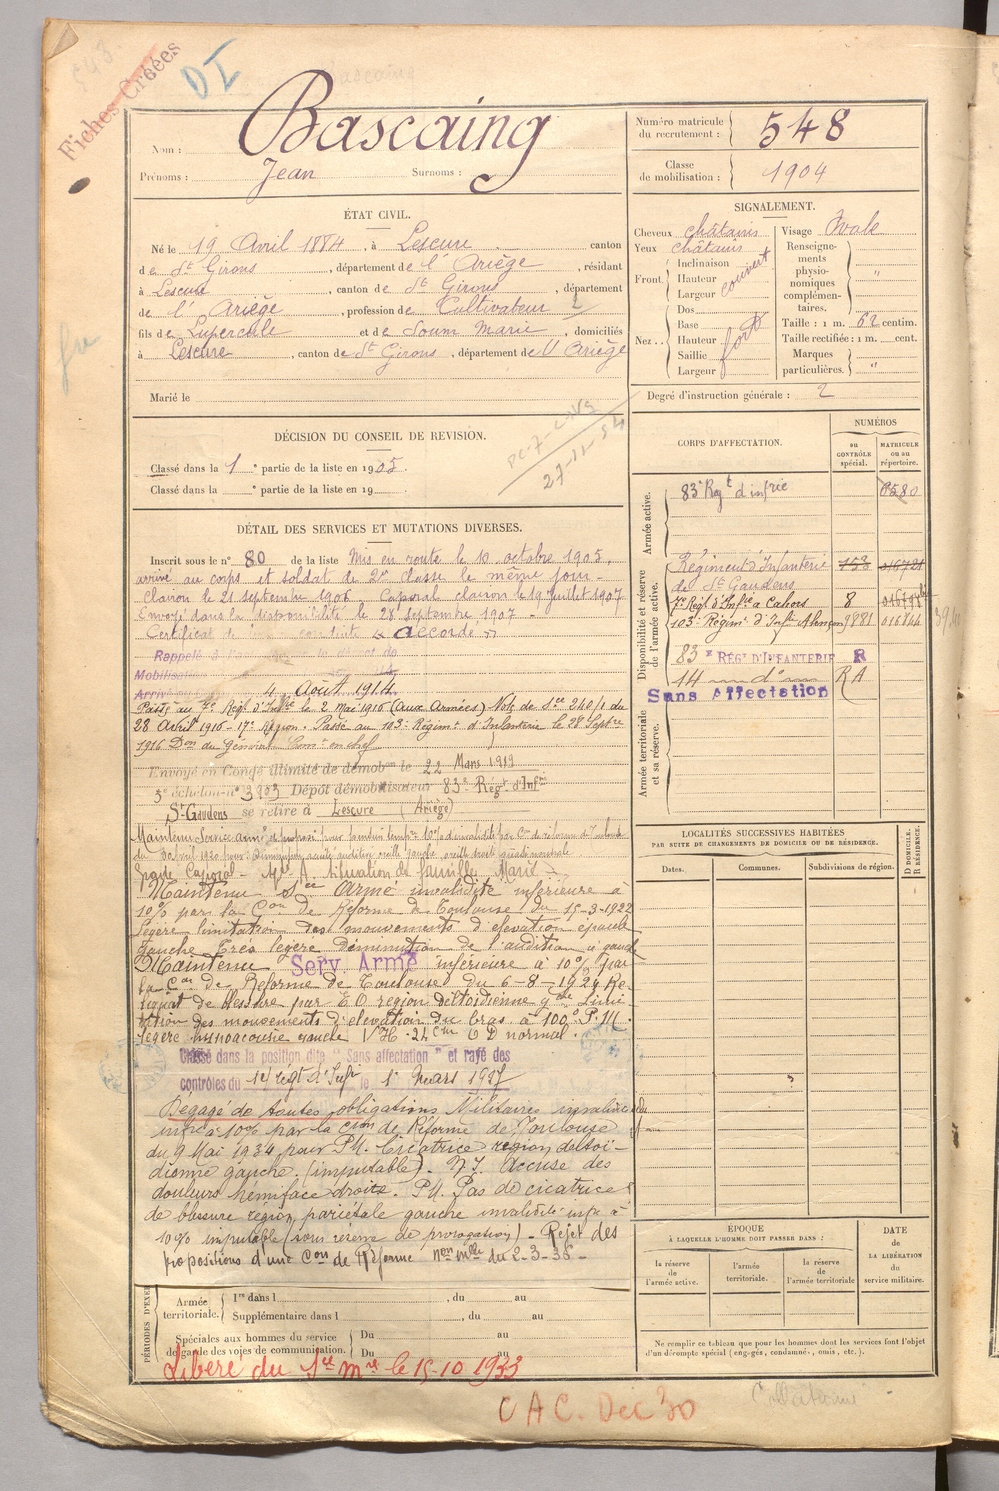 Fiches Créées
DI
Nom : Bascaing
Prénoms : Jean Surnoms :
Numéro matricule du recrutement : 548
Classe de mobilisation : 1904
ÉTAT CIVIL.
Né le 19 Avril 1884, à Lescure canton
de St Girons, département de l'Ariège, résidant
à Lescure, canton de St Girons, département
de l'Ariège, profession de Cultivateur
fils de Lupercule et de Soum Marie, domiciliés
à Lescure, canton de St Girons, département de l'Ariège
Marié le
SIGNALEMENT.
Cheveux châtains
Yeux châtains
Front. Inclinaison Hauteur Largeur couvert
Nez.. Dos Base Hauteur Saillie Largeur fort
Visage Ovale
Renseignements physionomiques complémentaires. "
Taille : 1 m. 62 centim.
Taille rectifiée : 1 m. cent.
Marques particulières. "
Degré d'instruction générale : 2
DÉCISION DU CONSEIL DE REVISION.
Classé dans la 1e partie de la liste en 1905.
Classé dans la e partie de la liste en 19
27-11-54
DÉTAIL DES SERVICES ET MUTATIONS DIVERSES.
Inscrit sous le n° 80 de la liste Mis en route le 10 octobre 1905,
arrivé au corps et soldat de 2e classe le même jour -
Clairon le 21 septembre 1906 Caporal clairon le 19 juillet 1907
Envoyé dans la disponibilité le 28 septembre 1907 -
Certificat de bonne conduite accordé
Rappelé à l'activité
Mobilisation
Arrivé 4 Août 1914
Passé au 7e Régt d'Infrie le 2 mai 1916 (aux Armées) Note de Sce 240/1 du
28 Avril 1916 - 17e Région. Passé au 103e Régimt d'Infanterie le 28 Septbre
1916 Don du Général Comt en chef
Envoyé en Congé illimité de démobon le 22 Mars 1919
3e échelon n° 3903 Dépôt démobilisateur 83e Régt d'Infie
St Gaudens se retire à Lescure (Ariège)
Maintenu Service armé
Grade Caporal - Situation de famille, Marié
Maintenu Sce Armé invalidité inférieure à
10% par la Con de Réforme de Toulouse du 15-3-1922
Légère limitation des mouvements d'élévation épaule
gauche Très légère diminution de l'audition à gauche
Maintenu Serv. Armé inférieure à 10% par
la Con de Réforme de Toulouse du 6-8-1924 Re-
liquat de blessure par E O région deltoïdienne gche Limi-
tation des mouvements d'élévation du bras à 100° P.M.
légère hypoacousie gauche V H. 24cm O D normal.
Classé dans la position dite "Sans affectation" et rayé des
contrôles du 14e régt d'Infie le 1er Mars 1927
Dégagé de toutes obligations Militaires invalidité
infre à 10% par la Con de Réforme de Toulouse
du 9 Mai 1934 pour P.M. Cicatrice région deltoï-
dienne gauche. (imputable). N.I. Accuse des
douleurs hémiface droite. P.M. Pas de cicatrice
de blessure région pariétale gauche invalidité infre à
10% imputable (sous réserve de prorogation) - Rejet des
propositions d'une Con de Réforme non mlle du 2-3-38 -
CORPS D'AFFECTATION.
NUMÉROS
au CONTRÔLE spécial.
MATRICULE ou au répertoire.
Armée active.
83e Régt d'infrie 0580
Disponibilité et réserve de l'armée active.
Régiment d'Infanterie de St Gaudens 158 016721
7e Régt d'Infie à Cahors 8
103e Régimt d'Infie Alençon 9881 016844
83e RÉGt D'INFANTERIE R
14 — d° — RA
Sans Affectation
Armée territoriale et sa réserve.
LOCALITÉS SUCCESSIVES HABITÉES
PAR SUITE DE CHANGEMENTS DE DOMICILE OU DE RÉSIDENCE.
Dates. Communes. Subdivisions de région. D DOMICILE. R RÉSIDENCE.
ÉPOQUE
À LAQUELLE L'HOMME DOIT PASSER DANS :
la réserve de l'armée active.
l'armée territoriale.
la réserve de l'armée territoriale
DATE de LA LIBÉRATION du service militaire.
Ne remplir ce tableau que pour les hommes dont les services font l'objet
d'un décompte spécial (engagés, condamnés, omis, etc.).
PÉRIODES D'EXER
Armée territoriale. 1re dans l , du au
Supplémentaire dans l , du au
Spéciales aux hommes du service de garde des voies de communication. Du au
Du au
Libéré du Sce Mre le 15-10 1933
C A C. Dec 30